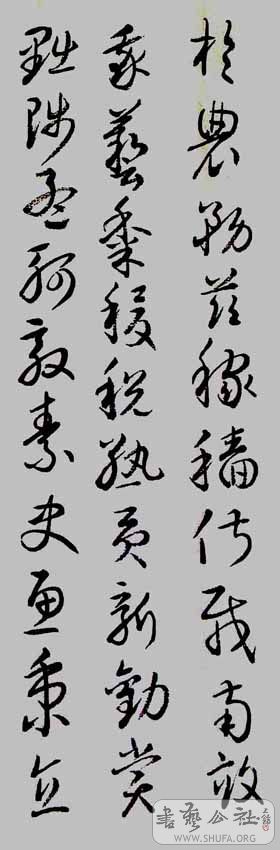 於農務茲稼穡俶載南畝
我藝黍稷稅熟貢新勸賞
黜陟孟軻敦素史魚秉直
書藝公社
WWW.SHUFA.ORG